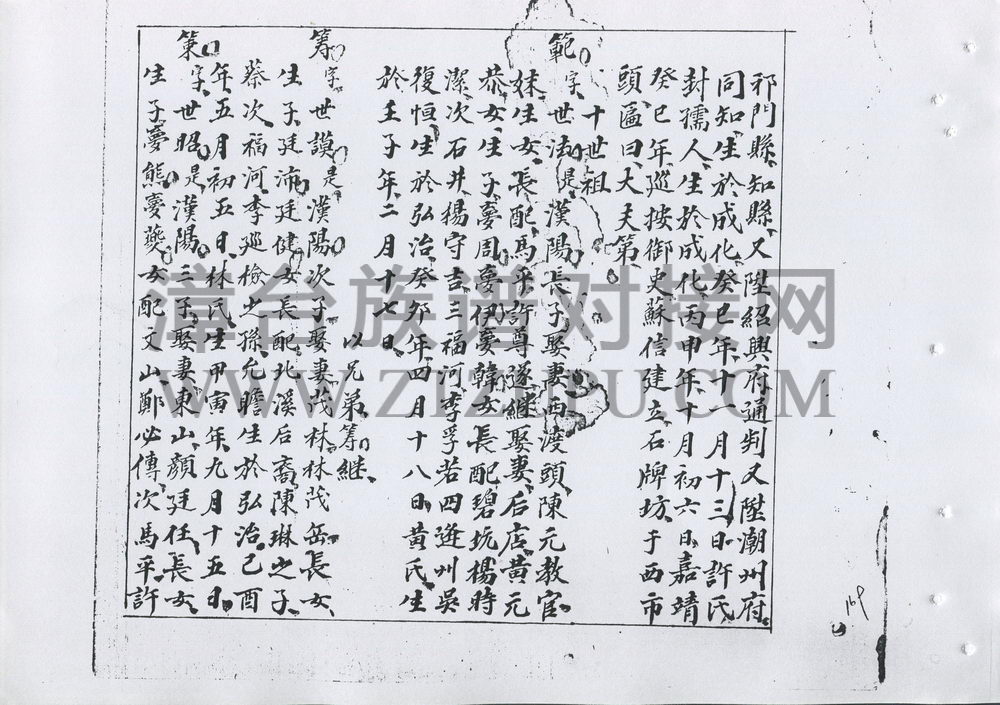 祁門縣、知縣、又陞紹興府通判又陞潮州府
同知、生於成化、癸巳年、十一月十三日、許氏
封孺人、生於成化、丙申年、十月初六日、嘉靖
癸巳年、巡按御史蘇信建立、石牌坊、于西市
頭匾曰、大夫第、
十世祖
範字世法、是漢陽、長子、娶妻、西渡頭、陳元教官、
妹、生女、長配、馬平、許尊遂、継娶妻、后店、黄元
恭、女、生子、夢周、夢伊、夢韓、女、長配、碧坑、楊時
潔、次石井、楊守吉、三福河、李孚若、四進州吳
復恒、生於弘治、癸夘年、四月十八日、黄氏、生
於壬子年、二月十七日、
以兄弟籌継、
筹字世謨是漢陽、次子、娶妻、茂林、林茂岳、長女、
生子、廷沛、廷健、女、長配、北溪后裔、陳琳之子、
蔡、次福河李巡檢之孫、允瞻、生於弘治、己酉
年、五月初五日、林氏生甲寅年、九月十五日、
策字世昭、是漢陽、三子、娶妻、東山、顔廷任、長女、
生子、夢熊、夢夔、女配文山、鄭必傳、次馬平、許
169
漳台族谱对接网
WWW.ZTZUPU.COM